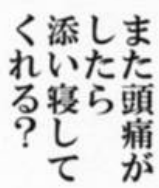 また頭痛が
したら
添い寝して
くれる？